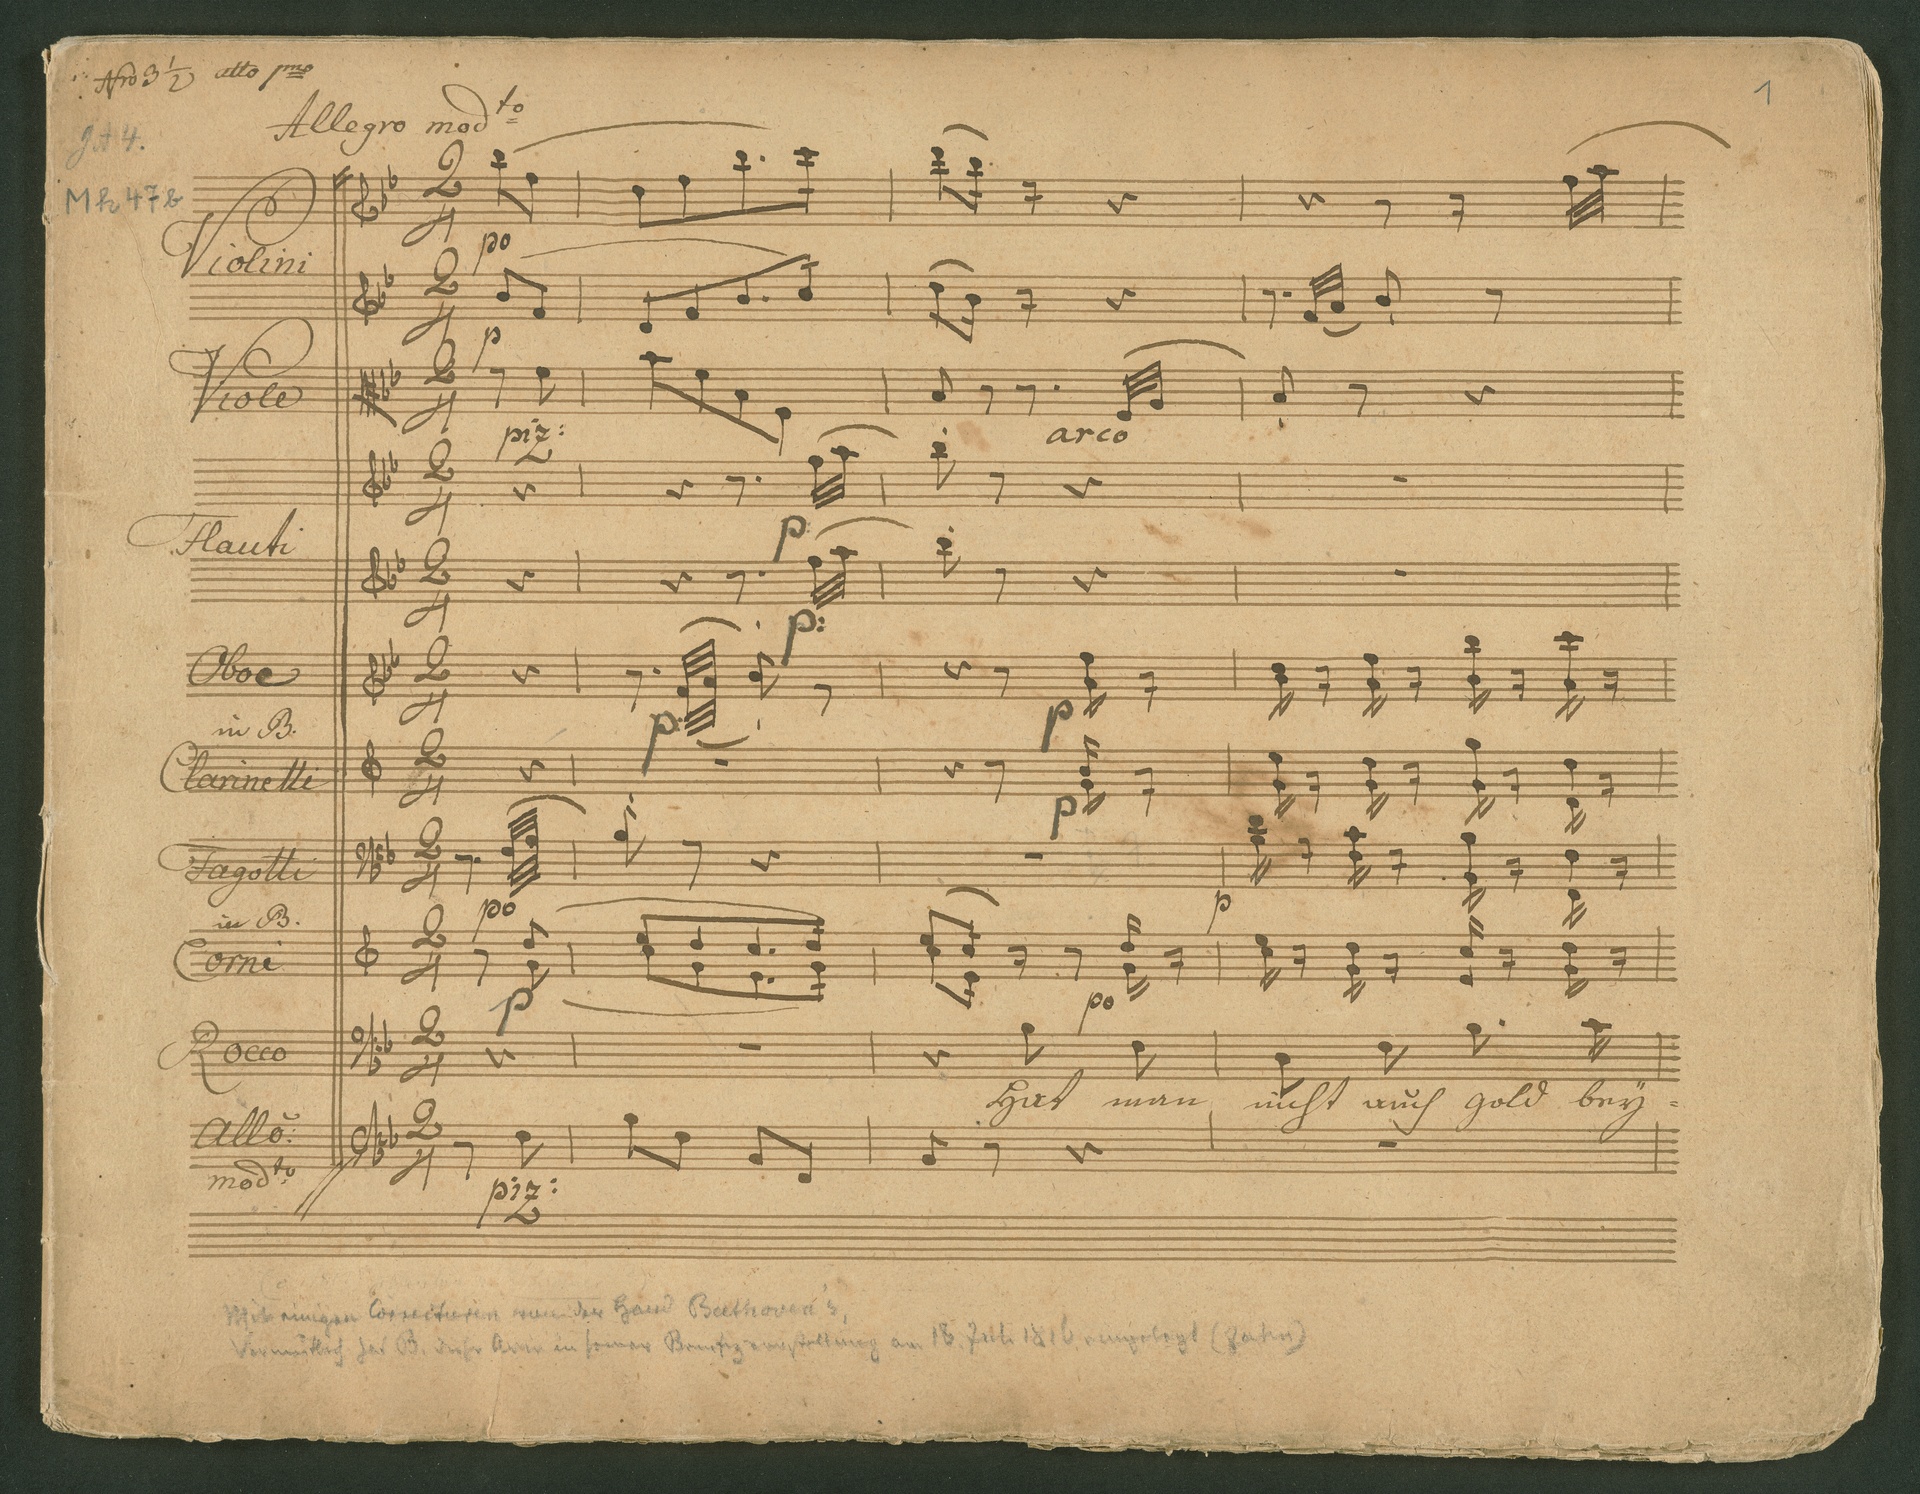 Nro 3 1/2 atto pmo
Allegro modto
1
JA 4.
Mh 47b
Violini
po
p
Viole
piz:
arco
Flauti
p:
p:
Oboe
p:
p
in B.
Clarinetti
p
Fagotti
po
p
in B.
Corni
p
po
Rocco
Hat man nicht auch gold bey =
Allo:
modto
piz:
Mit einigen Correcturen von der Hand Beethoven's,
Vermutlich hat B. diese Arie in seiner am 18. Juli 1816 eingelegt (Jahn)